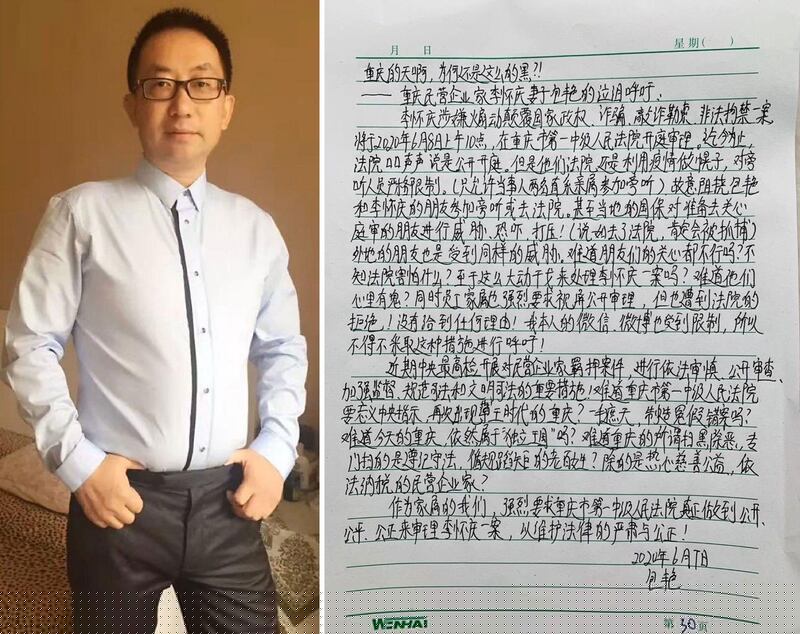 月 日 星期( )
重庆的天啊,为何还是这么的黑?!
—— 重庆民营企业家李怀庆妻子包艳的泣泪呼吁
李怀庆涉嫌煽动颠覆国家政权、诈骗、敲诈勒索、非法拘禁一案
将于2020年6月8日上午10点,在重庆市第一中级人民法院开庭审理。迄今为止,
法院口口声声说是公开开庭。但是他们法院还是利用疫情做幌子,对旁
听人员严格限制。(只允许当事人两名直系亲属参加旁听)故意阻挠包艳
和李怀庆的朋友参加旁听或去法院。甚至当地的国保对准备去关心
庭审的朋友进行威胁、恐吓、打压!(说如去了法院,肯定会被抓捕)
外地的朋友也是受到同样的威胁。难道朋友们的关心都不行吗?不
知法院害怕什么?至于这么大动干戈来处理李怀庆一案吗?难道他们
心里有鬼?同时员工家属也强烈要求视屏公开审理,但也遭到法院的
拒绝!没有给到任何理由!我本人的微信、微博也受到限制,所以
不得不采取这种措施进行呼吁!
近期中央最高检开展对民营企业家羁押案件,进行依法审慎、公开审查、
加强监督、规范司法和文明司法的重要措施!难道重庆市第一中级人民法院
要忘义中央指示,再次出现薄王时代的重庆?一手遮天,制造冤假错案吗?
难道今天的重庆,依然属于“独立王国”吗?难道重庆的所谓扫黑除恶,专
门扫的是遵纪守法,循规蹈矩的老百姓?除的是热心慈善公益,依
法纳税的民营企业家?
作为家属的我们,强烈要求重庆市第一中级人民法院真正做到公开、
公平、公正来审理李怀庆一案,以维护法律的严肃与公正!
2020年6月7日
包艳
WENHAI 第30页